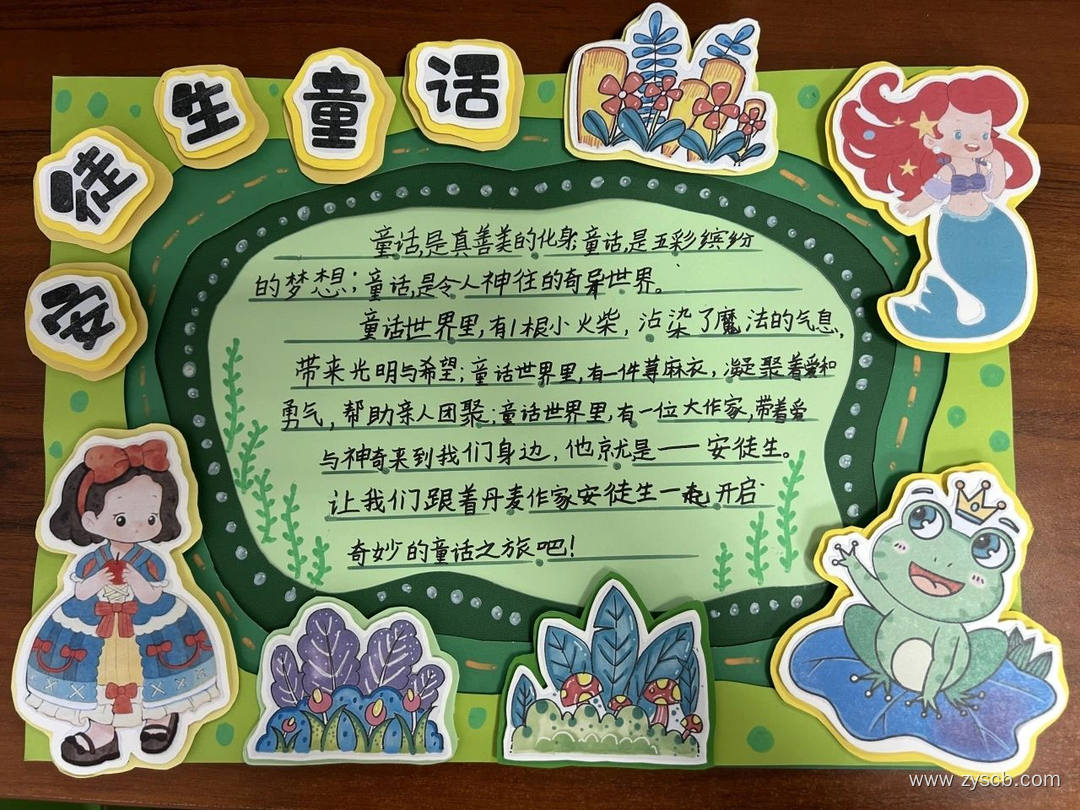 安徒生童话
童话,是真善美的化身;童话,是五彩缤纷
的梦想;童话,是令人神往的奇异世界。
童话世界里,有1根小火柴,沾染了魔法的气息,
带来光明与希望;童话世界里,有一件荨麻衣,凝聚着爱和
勇气,帮助亲人团聚;童话世界里,有一位大作家,带着爱
与神奇来到我们身边,他就是——安徒生。
让我们跟着丹麦作家安徒生一起开启
奇妙的童话之旅吧!
www.zyscb.com